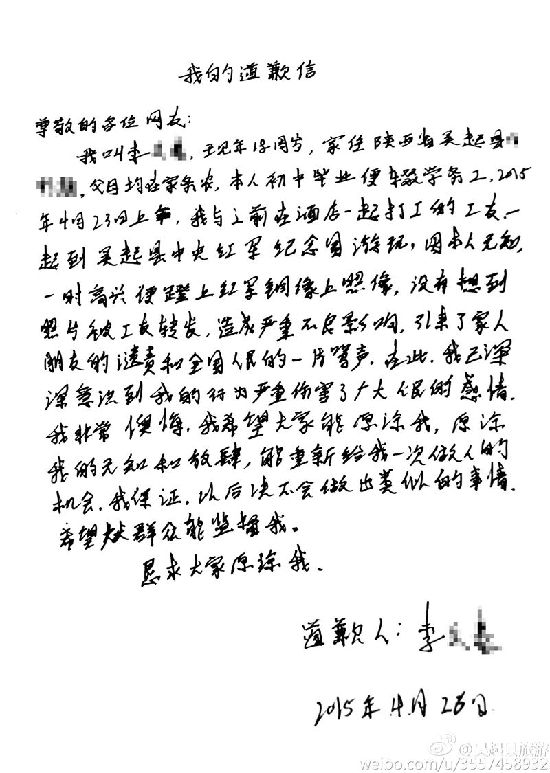 我的道歉信
尊敬的各位网友：
我叫李，现年18周岁，家住陕西省吴起县
父母均在家务农，本人初中毕业便辍学务工，2015
年4月23日上午，我与之前在酒店一起打工的工友一
起到吴起县中央红军纪念园游玩，因本人无知，
一时高兴便蹬上红军铜像上照像，没有想到
照片被工友转发，造成严重不良影响，引来了家人
朋友的谴责和全国人民的一片骂声，在此，我已深
深意识到我的行为严重伤害了广大人民的感情，
我非常懊悔，我希望大家能原谅我，原谅
我的无知和放肆，能重新给我一次做人的
机会，我保证，以后决不会做出类似的事情，
希望大群众能监督我。
恳求大家原谅我.
道歉人：李
2015年4月26日
@吴起县旅游
weibo.com/u/3557458932